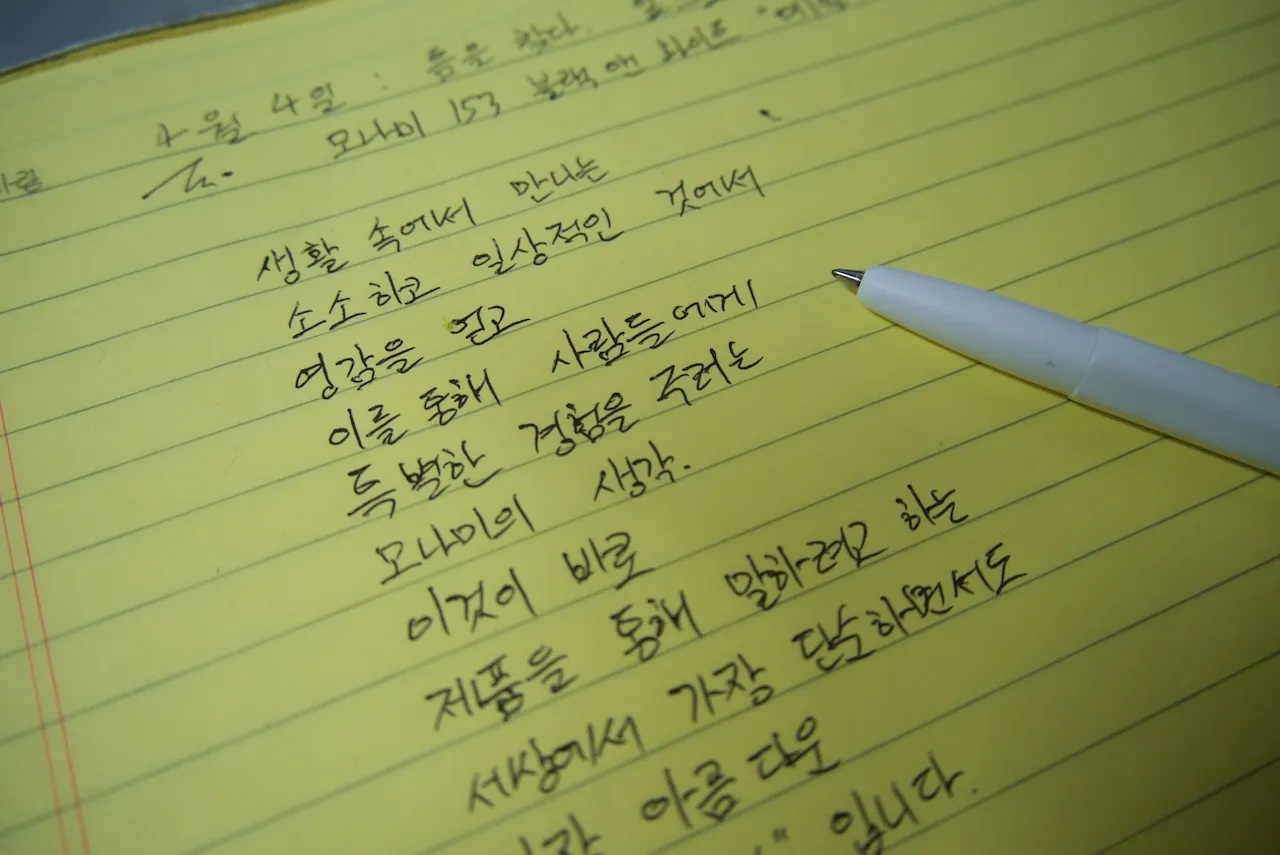 4월 4일 : 틈을 찾다.
모나미 153 블랙 앤 화이트
생활 속에서 만나는
소소하고 일상적인 것에서
영감을 얻고
이를 통해 사람들에게
특별한 경험을 주려는
모나미의 생각.
이것이 바로
제품을 통해 말하려고 하는
세상에서 가장 단순하면서도
아름다운
" 입니다.